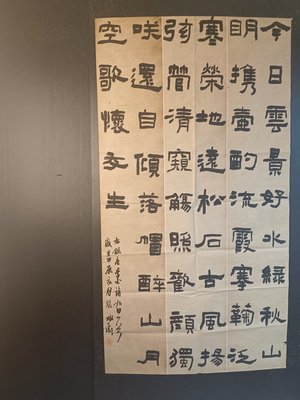 今日雲景好水綠秋山
明携壺酌流霞搴鞠泛
寒榮地遠松石古風揚
弦管清窺觴照歡顏獨
咲還自傾落帽醉山月
空歌懷友生
右錄唐李白詩九日一首